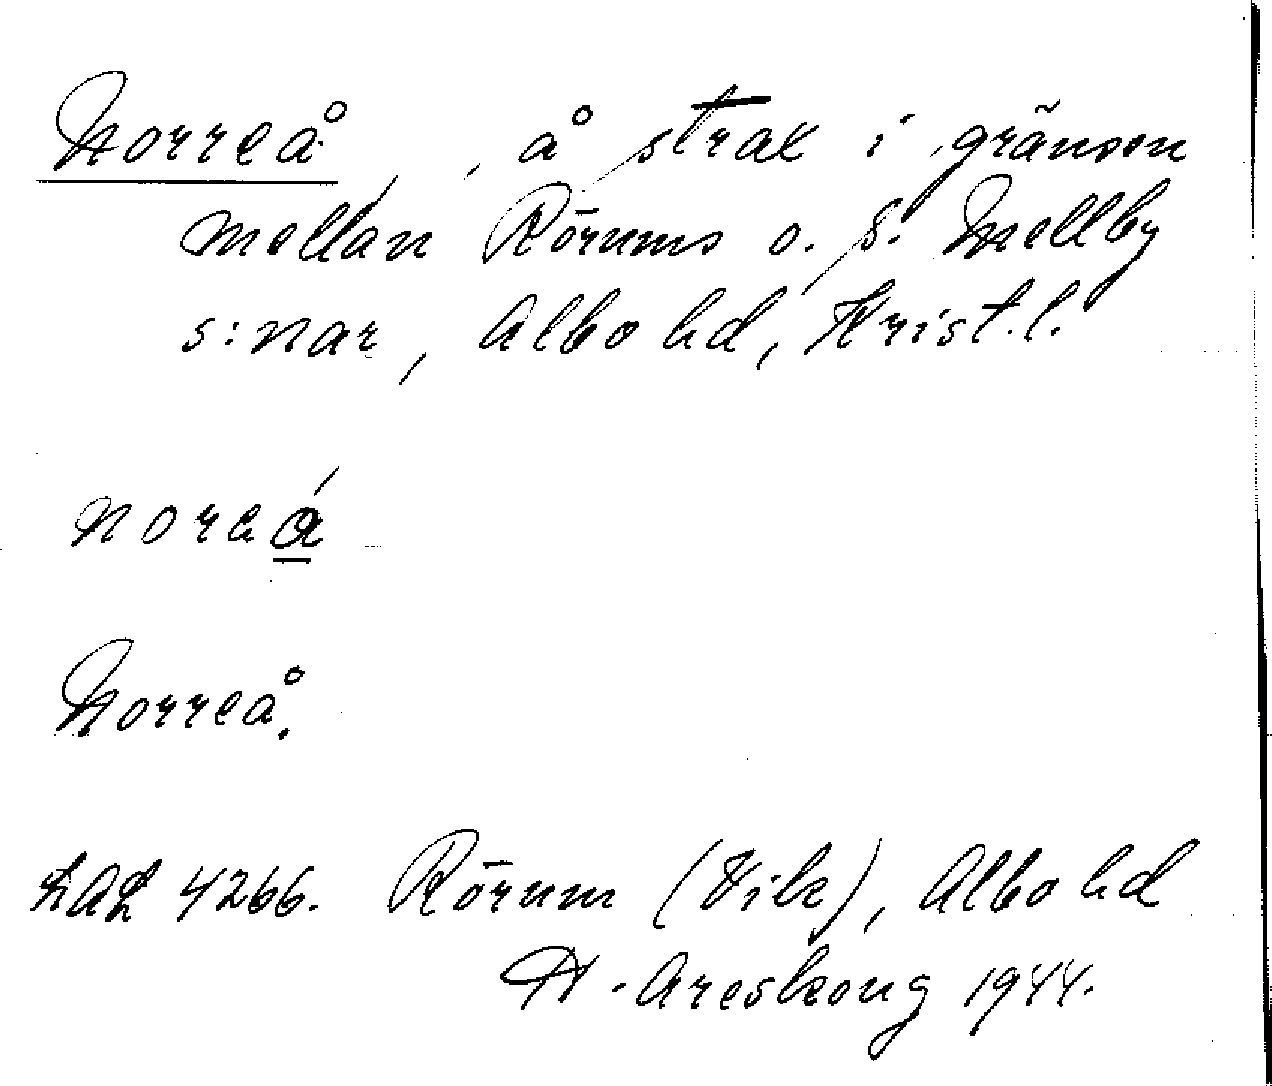 Norreå, å strax i gränsen
mellan Rörums o. S. Mellby
s:nar, Albo hd, Krist. l.
noreá
Norreå.
LAL 4266. Rörum (Vik), Albo hd
H. Areskoug 1944.